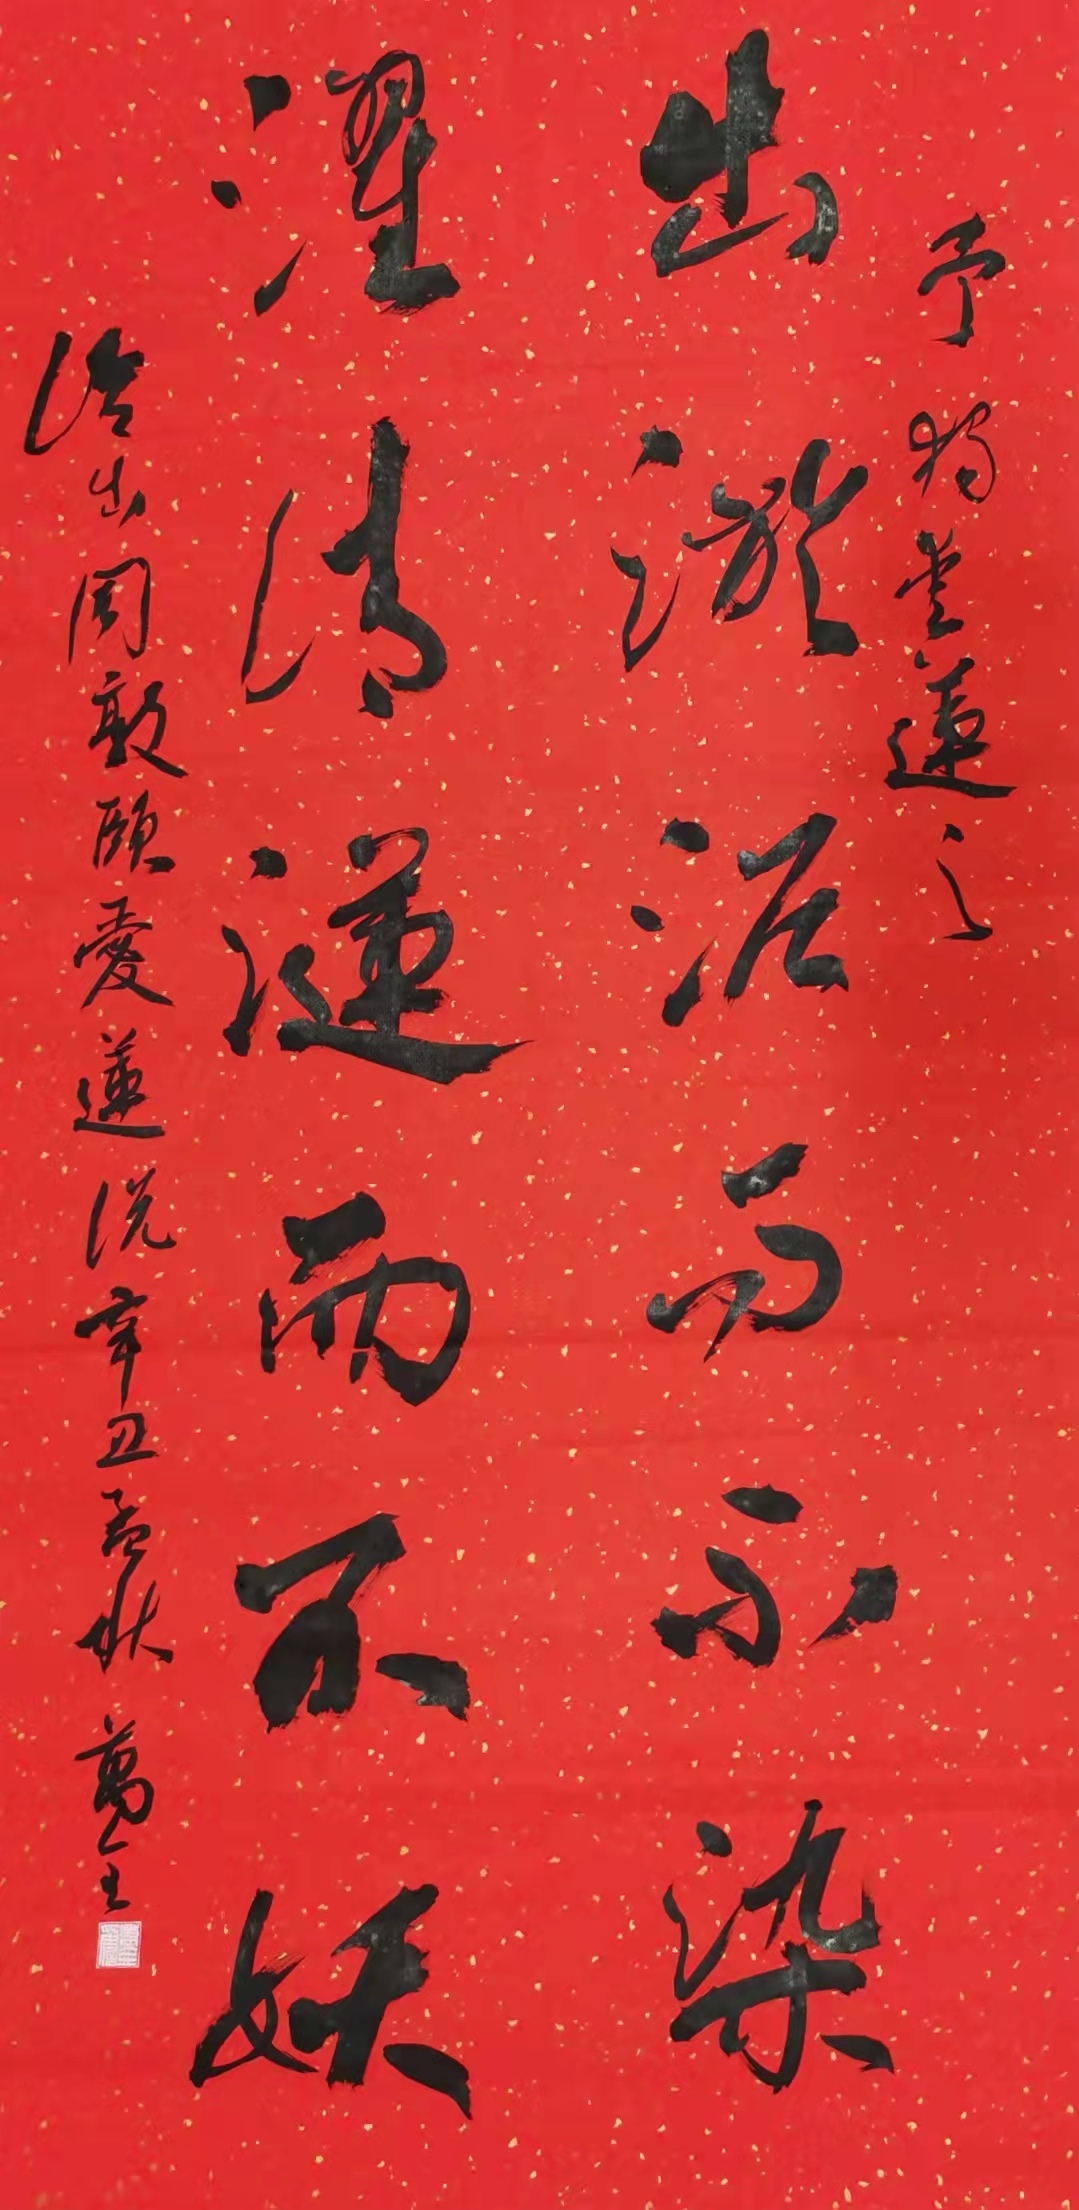 予獨愛蓮之
出淤泥而不染
濯清漣而不妖
語出周敦頤愛蓮說辛丑孟秋萬